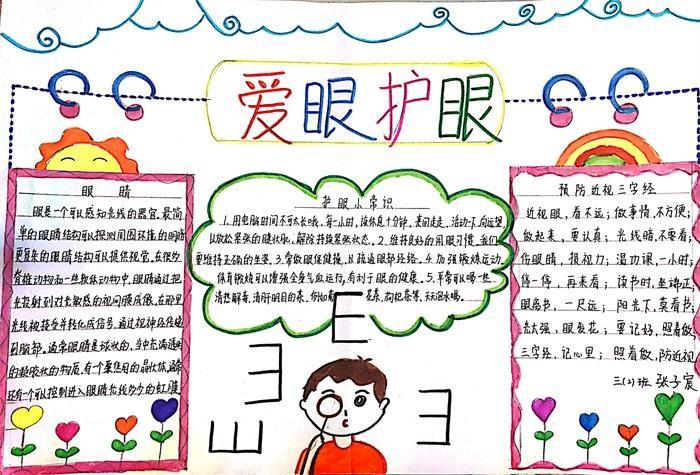 爱眼护眼
眼 睛
眼是一个可以感知光线的器官。最简
单的眼睛结构可以探测周围环境的明暗
更复杂的眼睛结构可以提供视觉。在很多
脊椎动物和一些软体动物中，眼睛通过把
光投射到对光敏感的视网膜成像，在那里
光线被接受并转化成信号，通过视神经传递
到脑部。通常眼睛是球状的，当中充满透明
的凝胶状的物质，有一个聚焦用的晶状体，通常
还有一个可以控制进入眼睛光线多少的虹膜
护眼小常识
1.用电脑时间不可太长哦，每一小时，该休息十分钟，要间走走，活动一下，向远望
以放松紧张的睫状肌，解除持续紧张状态。2.维持良好的用眼习惯，我们
要维持正确的坐姿。3.常做眼保健操，以疏通眼部经络。4.加强锻炼运动，
体育锻炼可以增强全身气血运行，有利于眼的健康。5.平常可以喝一些
清热解毒，清肝明目的茶，例如菊花茶，枸杞茶等，天天泡水喝。
E
E
E
E
预防近视三字经
近视眼，看不远；做事情，不方便；
做起来，要认真；光线暗，不要看；
伤眼睛，损视力；温功课，一小时，
停一停，再来看；读书时，坐端正，
眼离书，一尺远；阳光下，莫看书；
光太强，眼发花；要记好，照着做，
三字经，记心里；照着做，防近视
三(2)班 张子宸